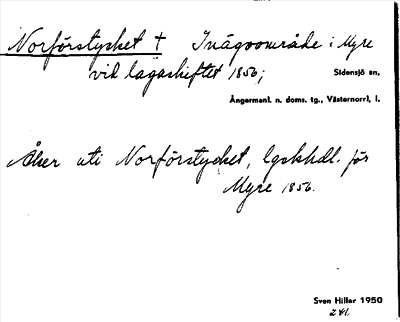 Norförstycket † Inägoområde i Myre
vid lagaskiftet 1856;
Sidensjö sn,
Ångermanl. n. doms. tg., Västernorrl, l.
Åker uti Norförstycket, lgskhdl. för
Myre 1856.
Sven Hiller 1950